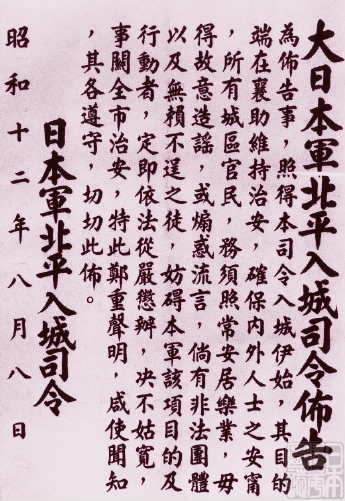 大日本軍北平入城司令佈告
為佈告事，照得本司令入城伊始，其目的
端在襄助維持治安，確保内外人士之安甯
，所有城區官民，務須照常安居樂業，毋
得故意造謠，或煽惑流言，倘有非法團體
以及無賴不逞之徒，妨碍本軍該項目的及
行動者，定即依法從嚴懲辦，决不姑寬，
事關全市治安，特此鄭重聲明，咸使聞知
，其各遵守，切切此佈。
日本軍北平入城司令
昭和十二年八月八日